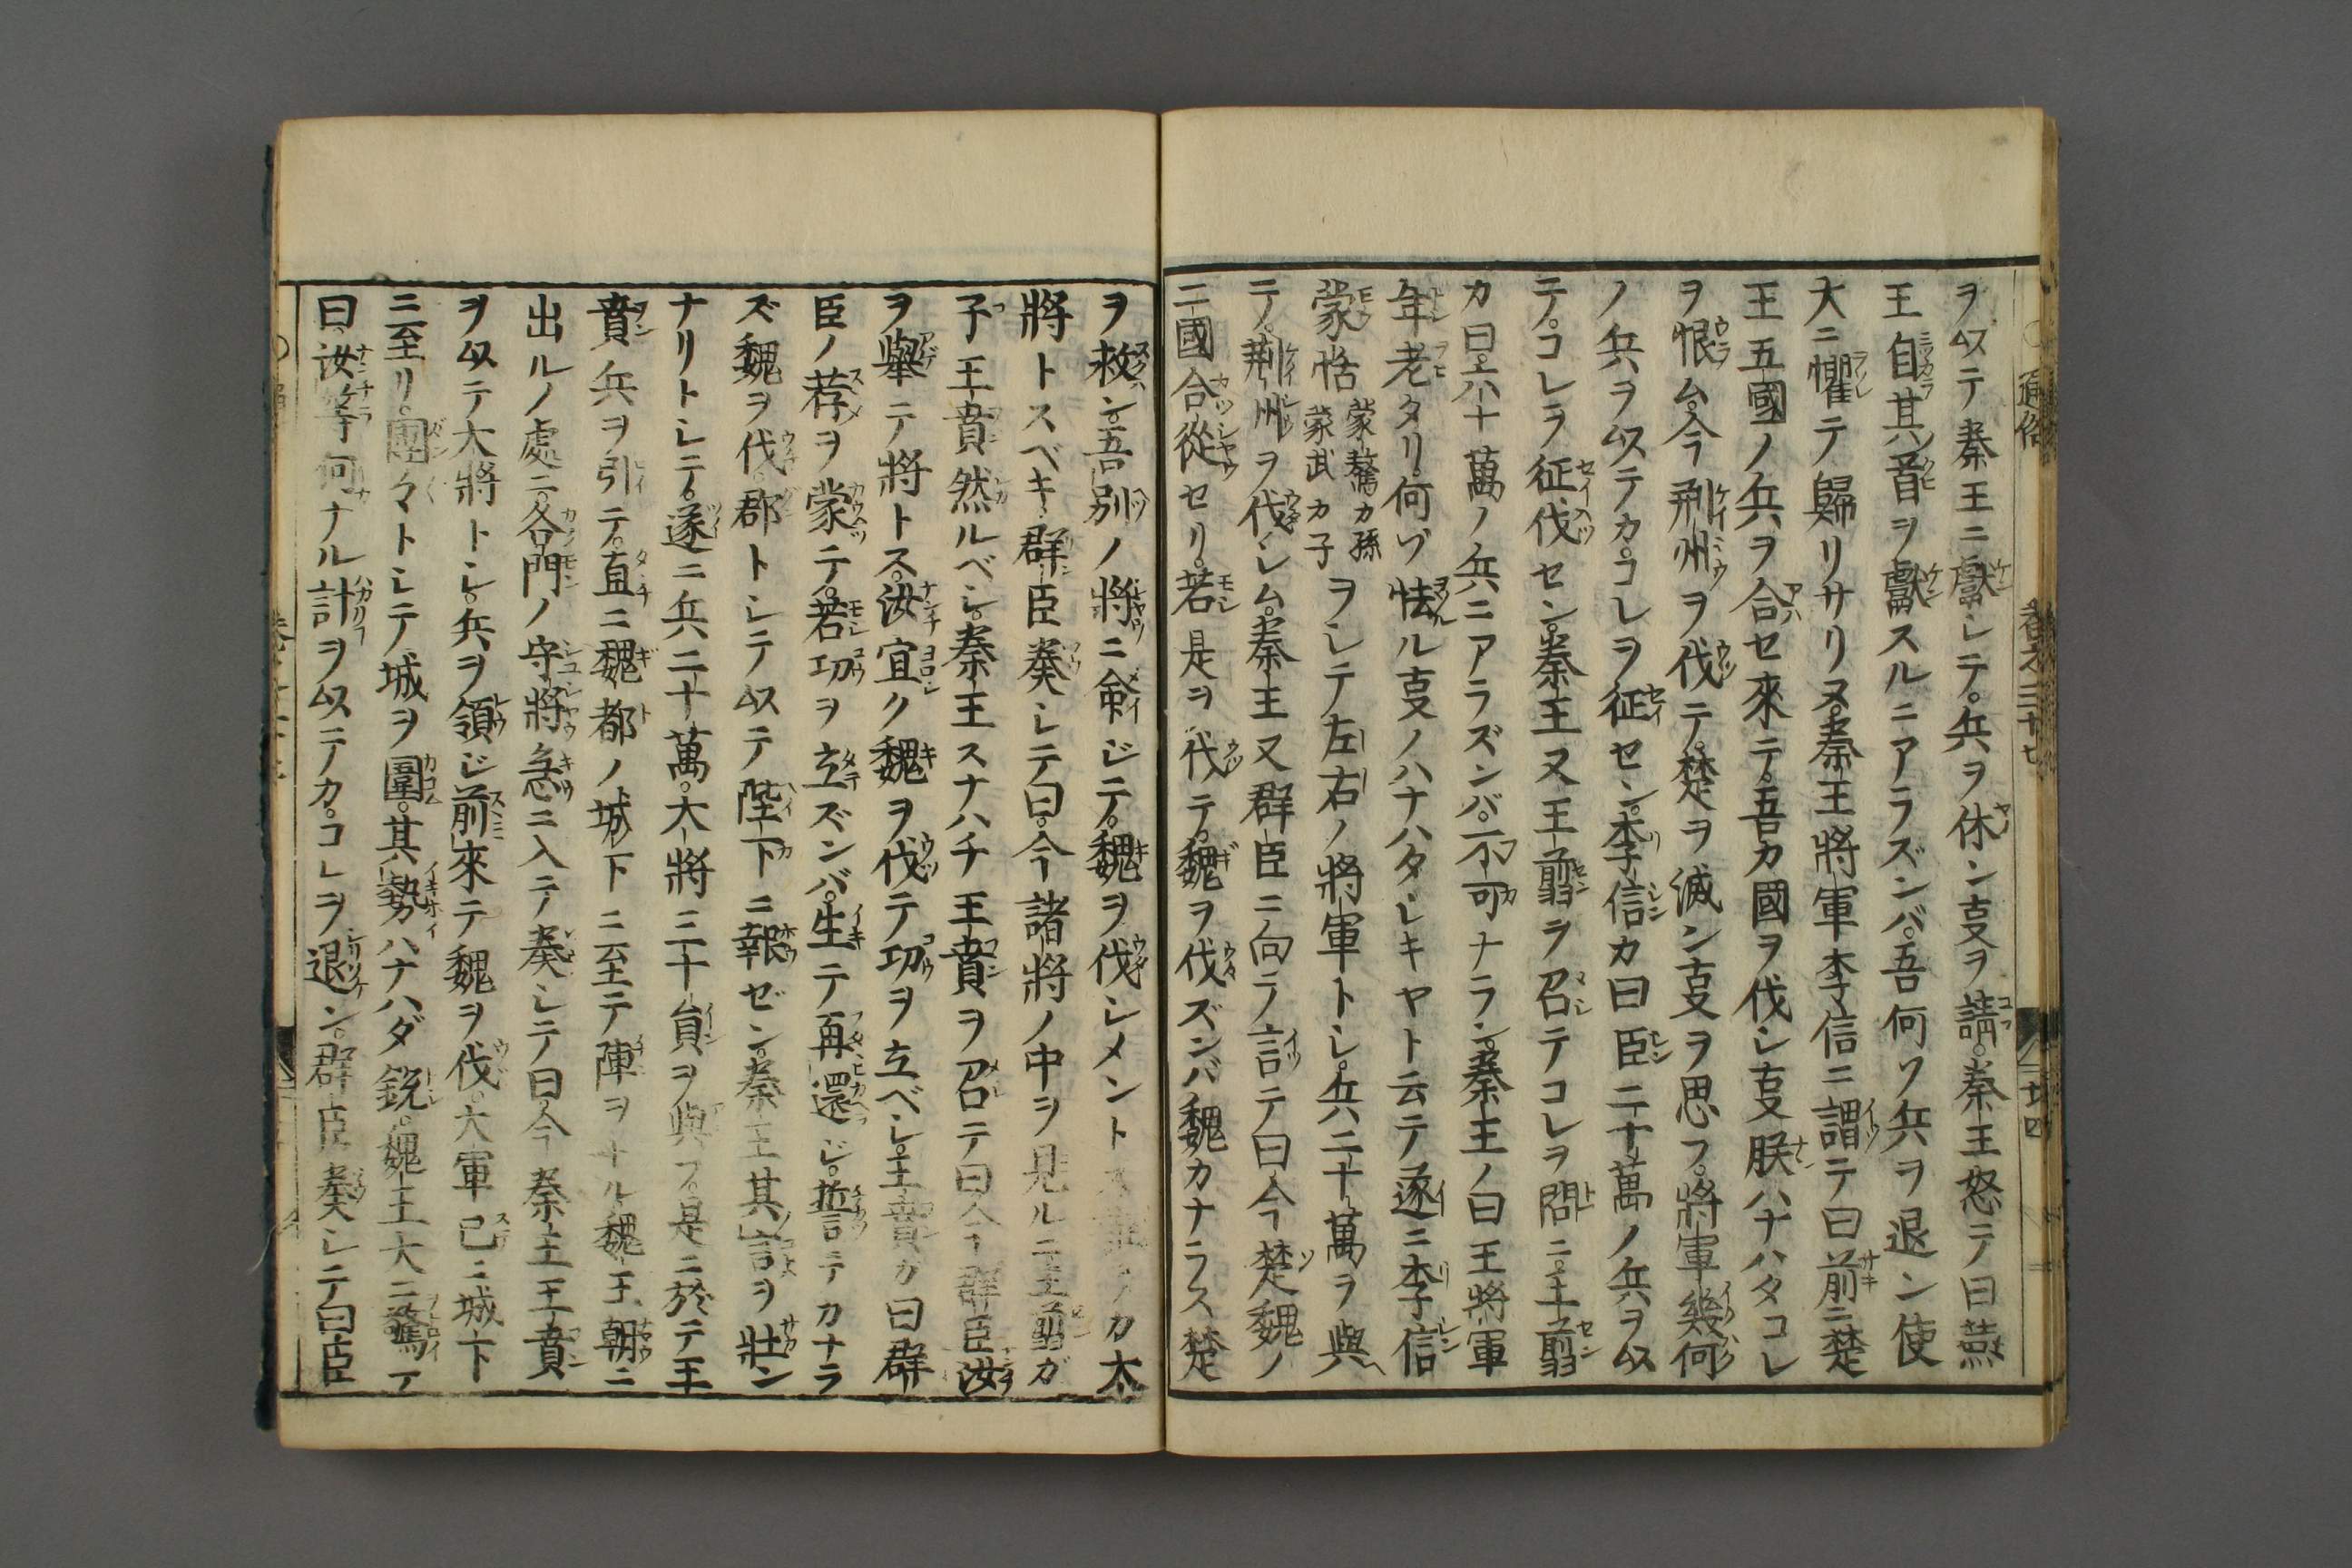 ヲ以テ秦王ニ獻シテ。兵ヲ休ン亊ヲ請。秦王怒テ曰燕
王自其首ヲ獻スルニアラズンバ。吾何ソ兵ヲ退ン使
大ニ懼テ歸リサリヌ。秦王將軍李信ニ謂テ曰前ニ楚
王五國ノ兵ヲ合セ來テ。吾カ國ヲ伐シ亊朕ハナハタコレ
ヲ恨ム。今荆州ヲ伐テ。楚ヲ滅ン亊ヲ思フ。將軍幾何
ノ兵ヲ以テカ。コレヲ征セン。李信カ曰臣二十萬ノ兵ヲ以
テ。コレヲ征伐セン。秦王又王翦ヲ召テコレヲ問ニ。王翦
カ曰。六十萬ノ兵ニアラズンバ。不可ナラン。秦王ノ曰王將軍
年老タリ。何ゾ怯ル亊ノハナハタシキヤト云テ遂ニ李信
蒙恬蒙驁カ孫蒙武カ子ヲシテ左右ノ將軍トシ。兵二十萬ヲ與
テ。荆州ヲ伐シム。秦王又群臣ニ向テ言テ曰今楚魏ノ
二國合從セリ。若是ヲ伐テ。魏ヲ伐ズンバ魏カナラス楚
ヲ救ン。吾別ノ將ニ命ジテ。魏ヲ伐シメント カ太
將トスベキ群臣奏シテ曰。今諸將ノ中ヲ見ルニ王翦ガ
子王賁然ルベシ。秦王スナハチ王賁ヲ召テ曰今群臣汝
ヲ舉テ將トス。汝宜ク魏ヲ伐テ功ヲ立ベシ。王賁カ曰群
臣ノ荐ヲ蒙テ。若功ヲ立ズンバ。生テ再還ジ。誓テカナラ
ズ魏ヲ伐。郡トシテ以テ陛下ニ報ゼン。秦王其言ヲ壯ン
ナリトシテ。遂ニ兵二十萬。大將三十員ヲ與フ。是ニ於テ王
賁兵ヲ引テ。直ニ魏都ノ城下ニ至テ陣ヲトル。魏王朝ニ
出ルノ處ニ。各門ノ守將急ニ入テ奏シテ曰。今秦主王賁
ヲ以テ大將トシ。兵ヲ領ジ前來テ魏ヲ伐。大軍已ニ城下
ニ至リ。團々トシテ城ヲ圍。其勢ハナハダ銳。魏王大ニ驚テ
曰。汝等何ナル計ヲ以テカ。コレヲ退ン。群臣奏シテ曰臣
通俗
卷之三十七
廿四